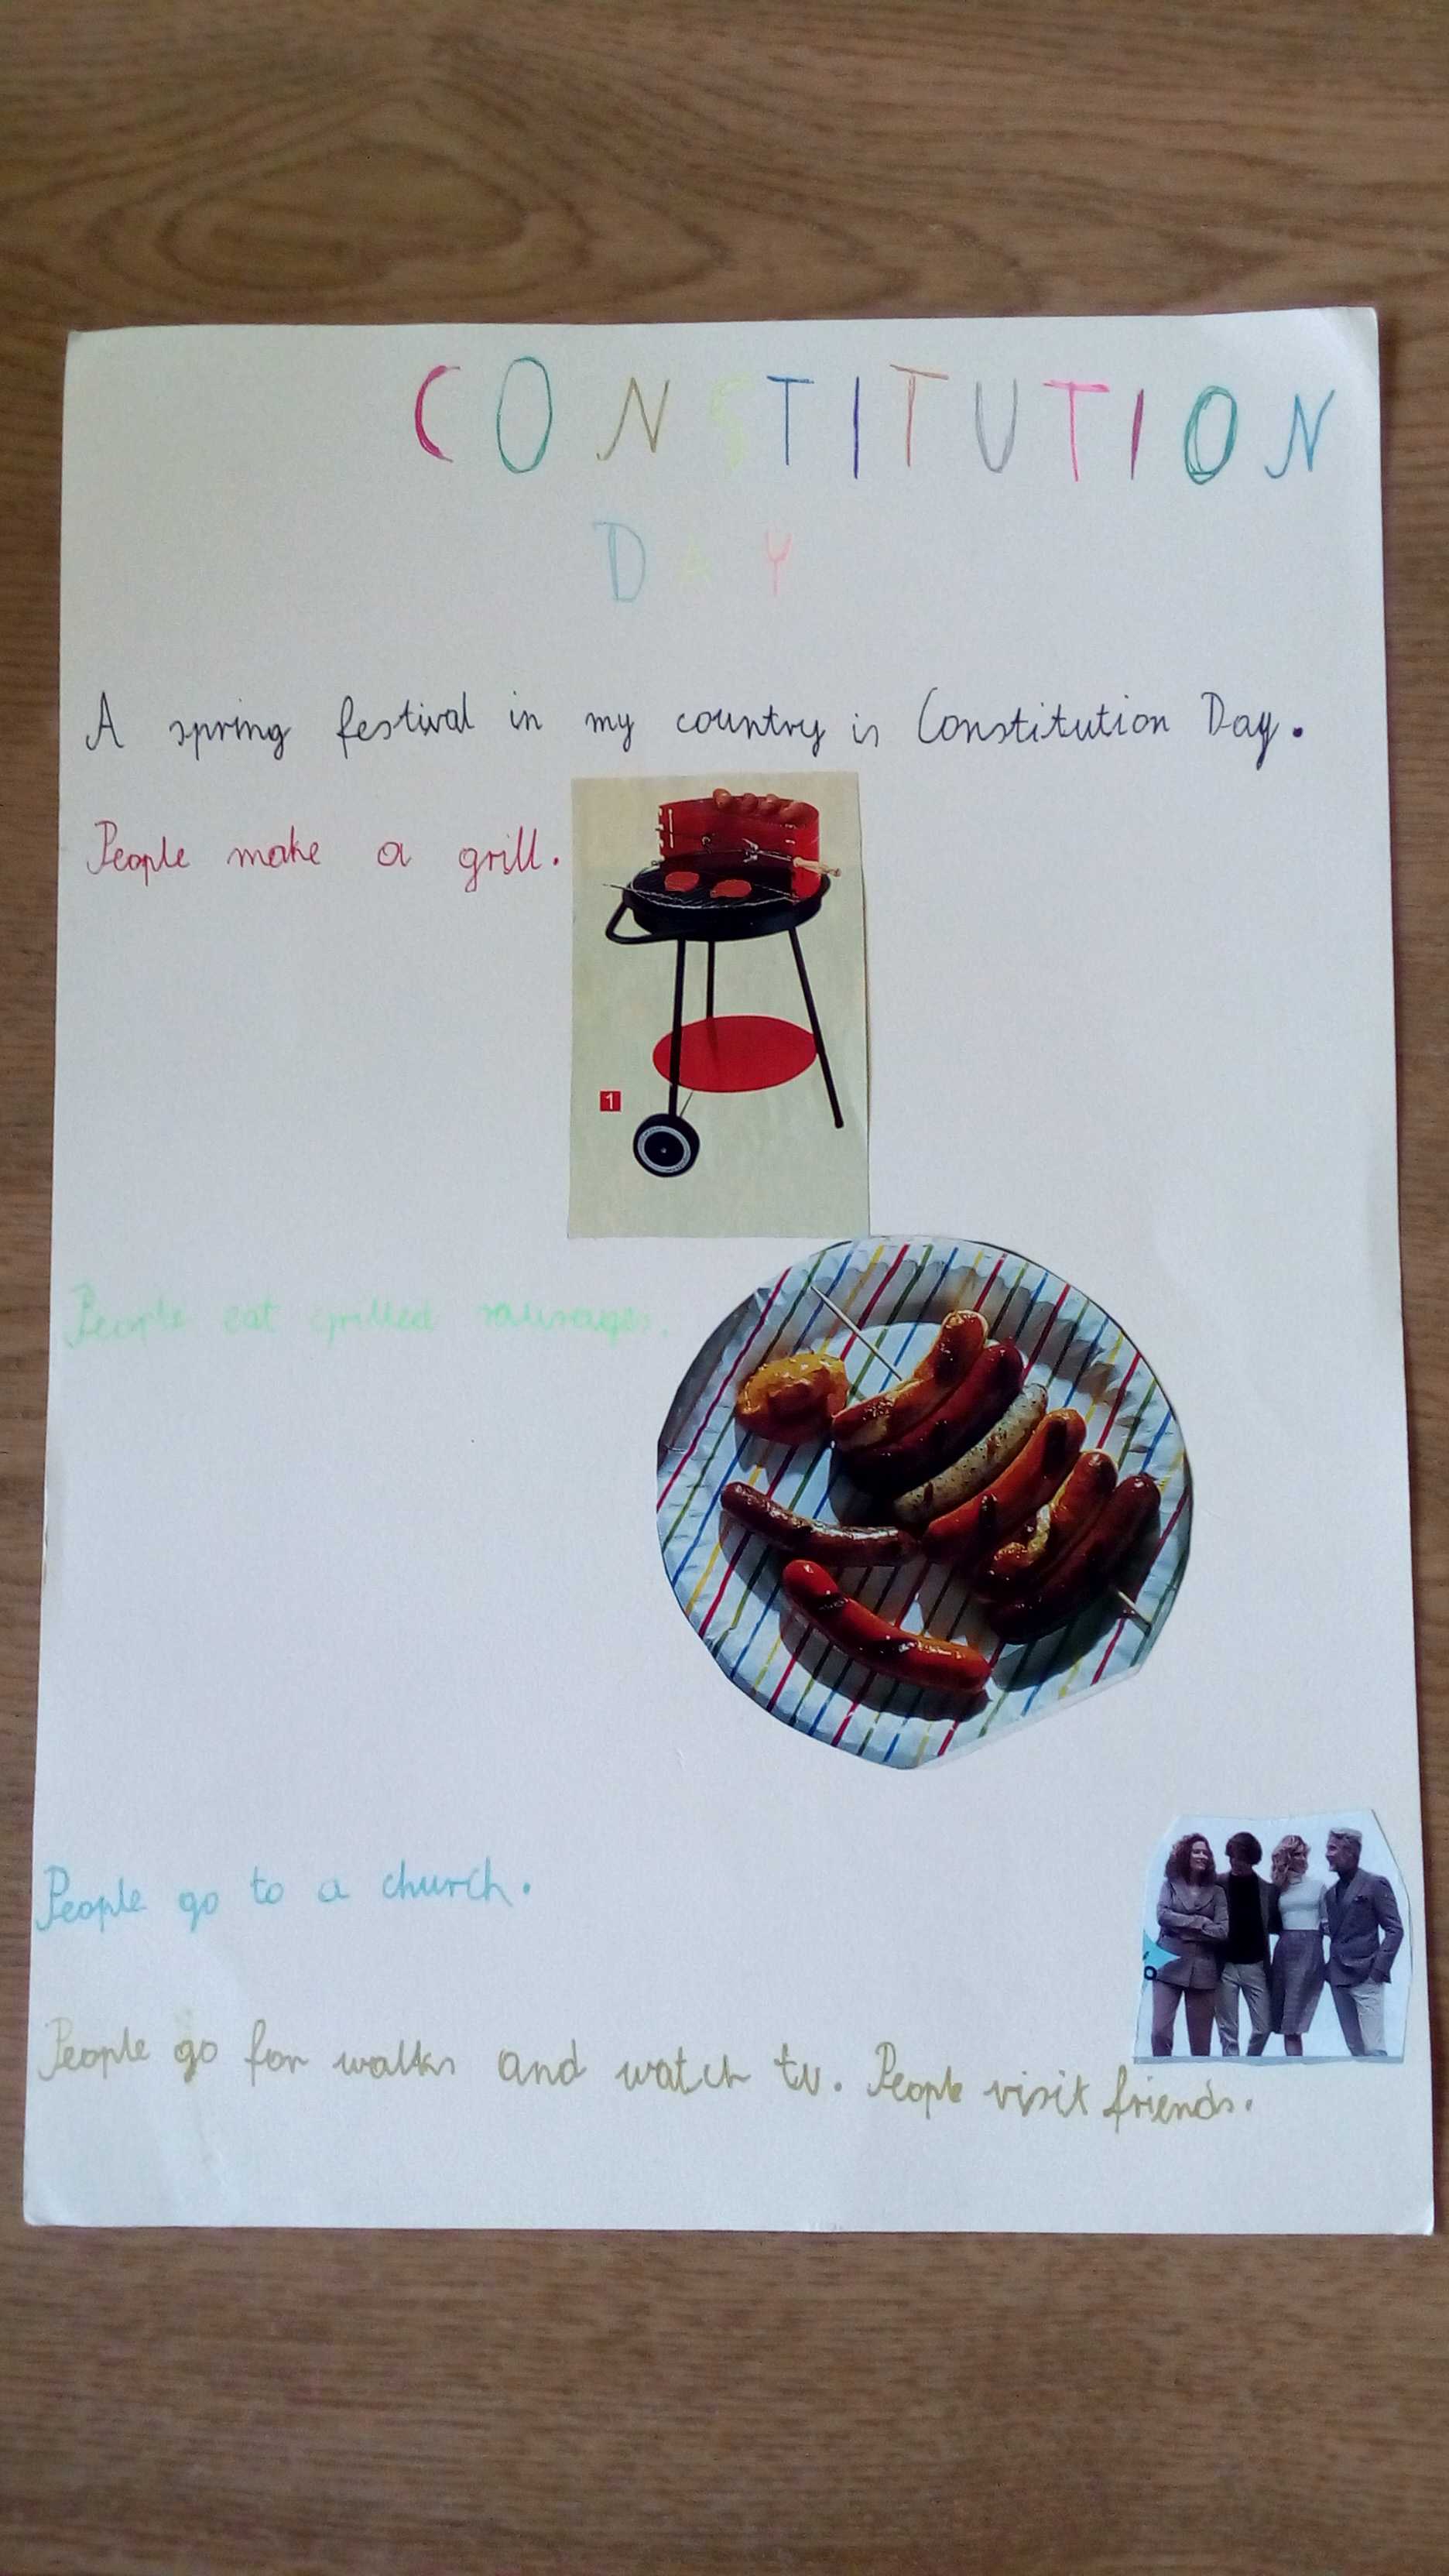 CONSTITUTION
DAY
A spring festival in my country is Constitution Day.
People make a grill.
1
People eat grilled sausages.
People go to a church.
People go for walks and watch tv. People visit friends.